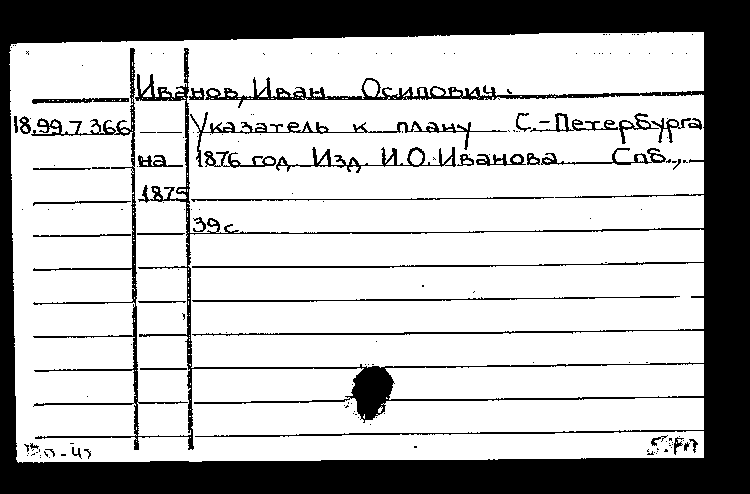 Иванов, Иван Осипович.
18.99.7.366 Указатель к плану С.-Петербурга
на 1876 год. Изд. И.О. Иванова. Спб.,
1875
39 с.